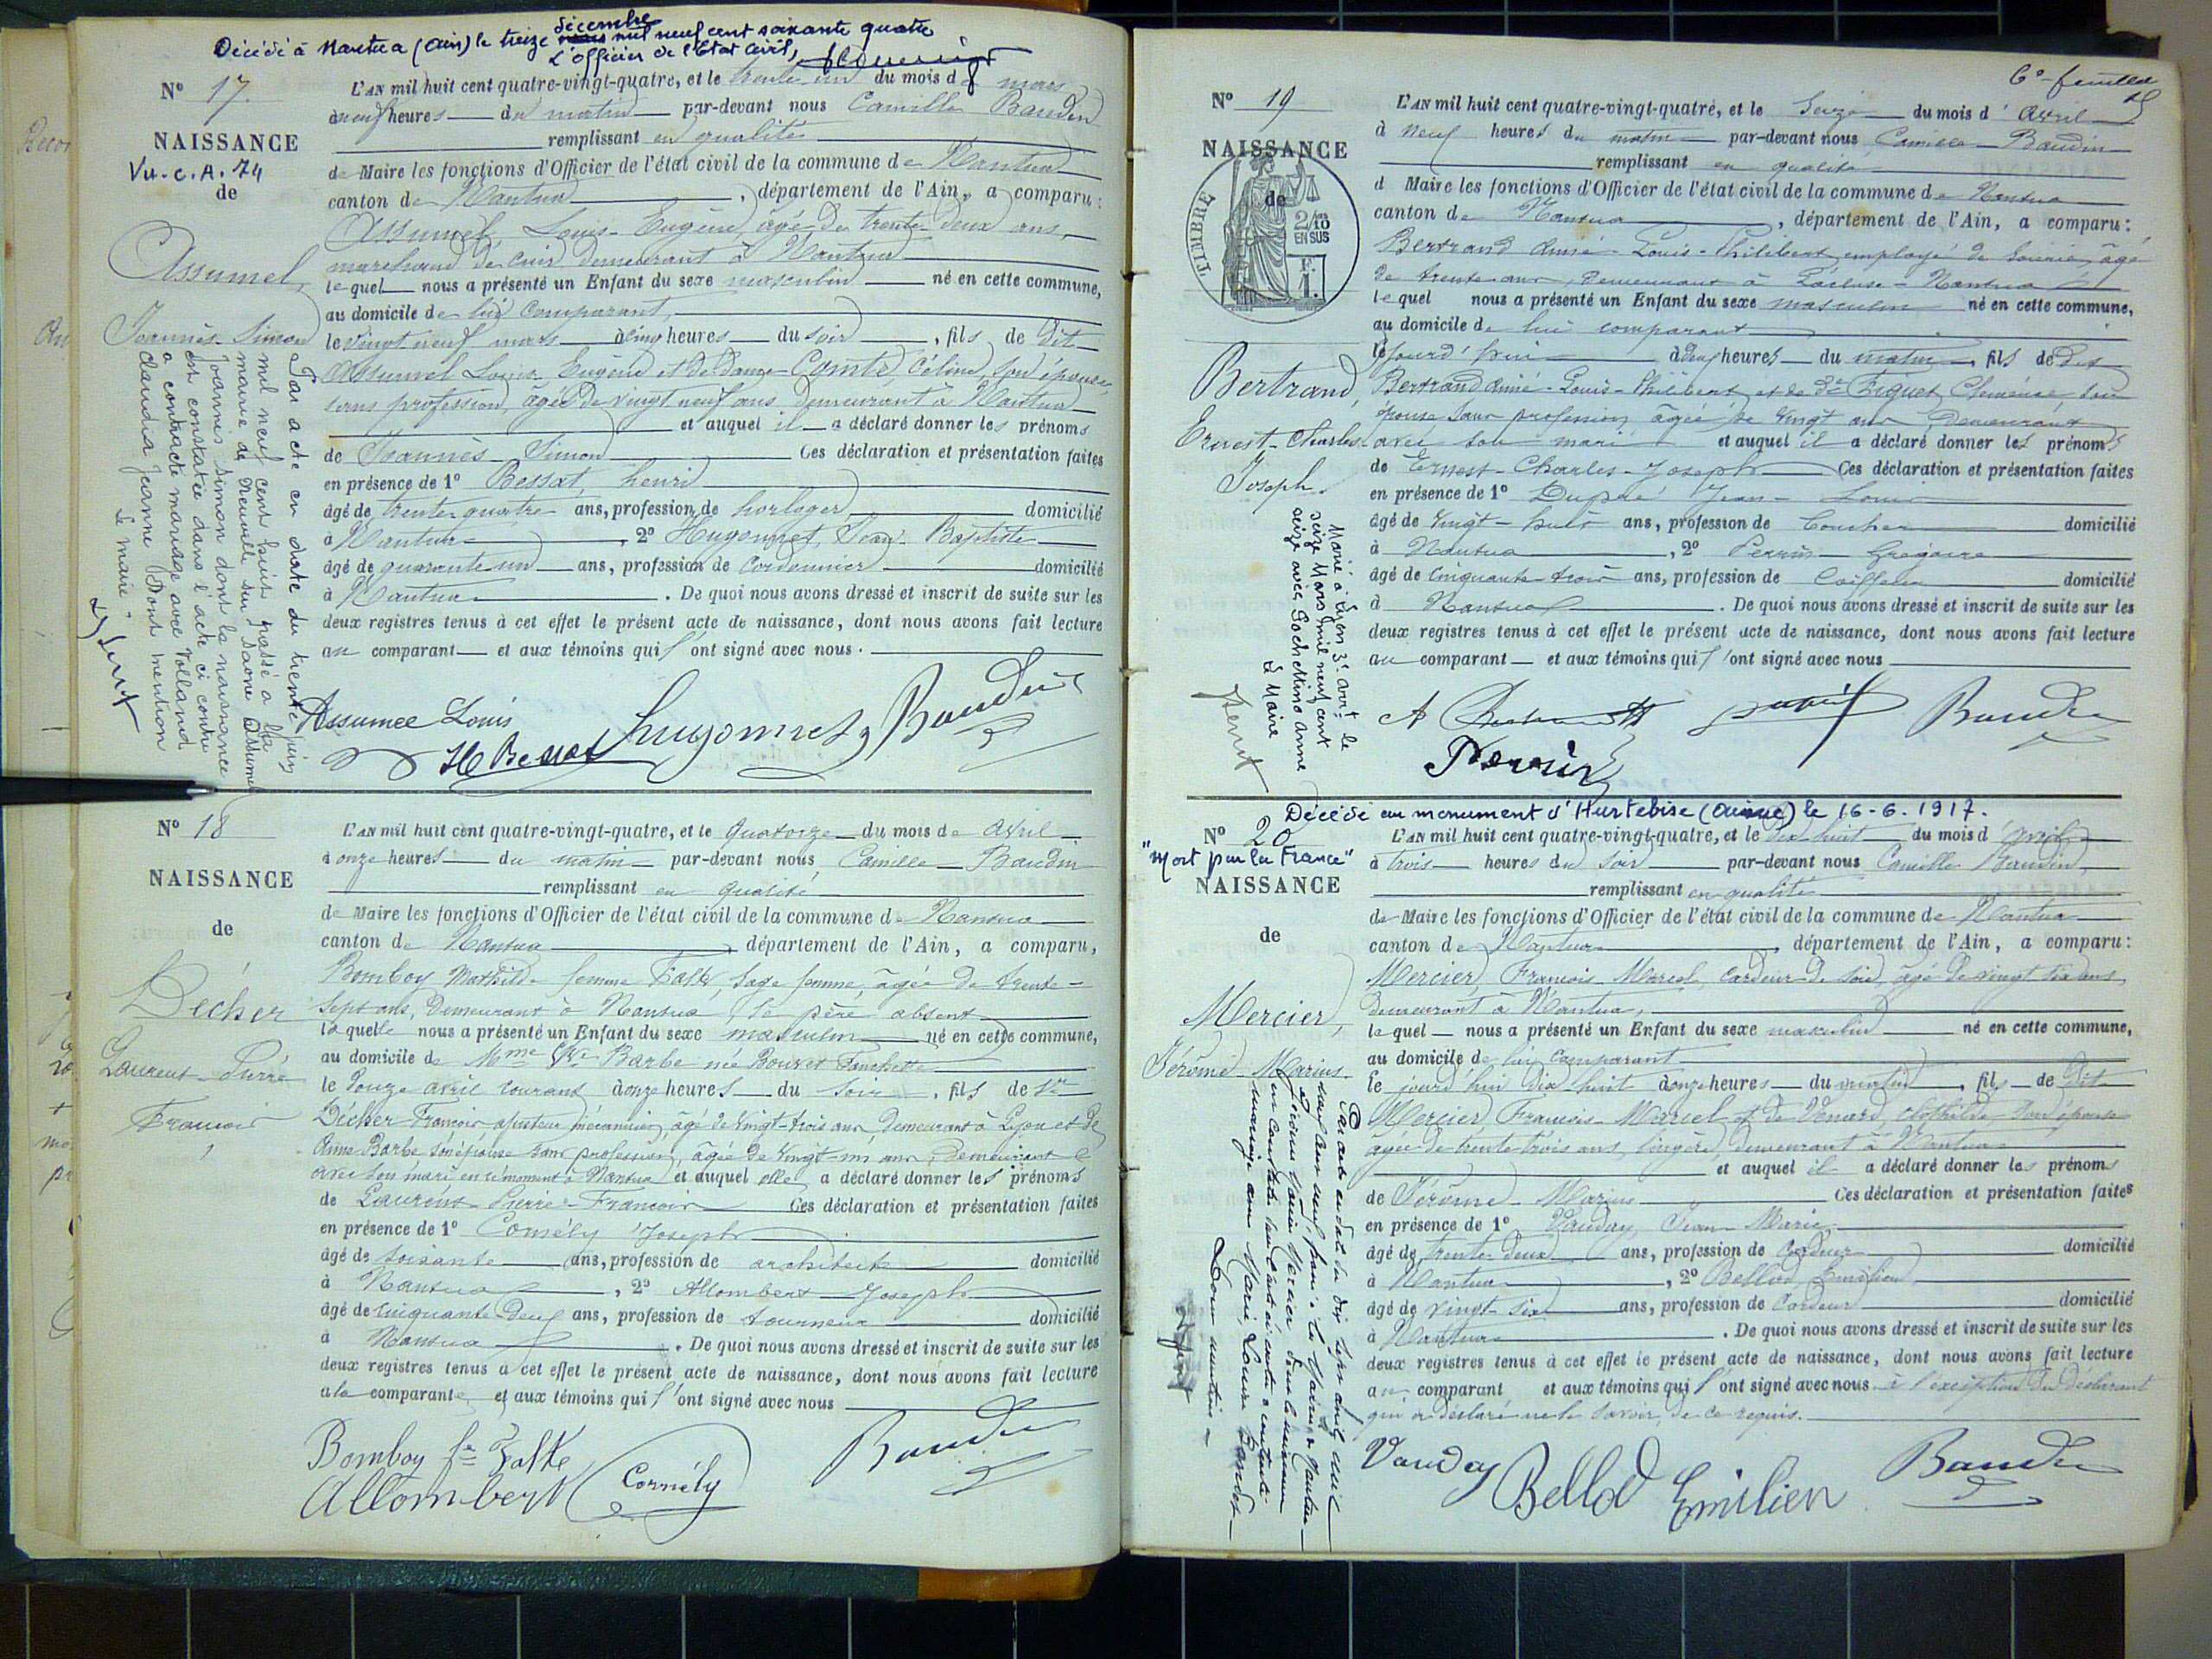 Décédé à Nantua (Ain) le treize décembre mil neuf cent soixante quatre
L'officier de l'Etat Civil,
N° 17.
NAISSANCE
Vu. C. A. 74
de
Assumel,
Joannès Simon
L'AN mil huit cent quatre-vingt-quatre, et le trente un du mois de mars
à neuf heures du matin par-devant nous Camille Baudin
remplissant en qualité
de Maire les fonctions d'Officier de l'état civil de la commune de Nantua
canton de Nantua, département de l'Ain, a comparu:
Assumel, Louis-Eugène, âgé de trente deux ans,
marchand de cuir, demeurant à Nantua
lequel nous a présenté un Enfant du sexe masculin né en cette commune,
au domicile de lui comparant,
le vingt neuf mars à cinq heures du soir, fils de dit
Assumel Louis Eugène et de dame Comte, Céline, son épouse,
sans profession, âgée de vingt neuf ans, demeurant à Nantua
et auquel il a déclaré donner les prénoms
de Joannès Simon Ces déclaration et présentation faites
en présence de 1° Bessat, henri
âgé de trente quatre ans, profession de horloger domicilié
à Nantua, 2° Hugonnet, Jean Baptiste
âgé de quarante un ans, profession de Cordonnier domicilié
à Nantua. De quoi nous avons dressé et inscrit de suite sur les
deux registres tenus à cet effet le présent acte de naissance, dont nous avons fait lecture
au comparant et aux témoins qui l'ont signé avec nous.
Par acte en date du trente juin
mil neuf cent huit passé à la
mairie de Neuville sur Saone Assumel
Joannès Simon dont la naissance
est constatée dans l'acte ci contre
a contracté mariage avec Volland
Claudia Jeanne Dont mention
Le maire.
Assumel Louis
H Bessat Hugonnet Baudin
N° 18
NAISSANCE
de
Décher
Laurent Pierre
François
L'AN mil huit cent quatre-vingt-quatre, et le quatorze du mois de avril
à onze heures du matin par-devant nous Camille Baudin
remplissant en qualité
de Maire les fonctions d'Officier de l'état civil de la commune de Nantua
canton de Nantua, département de l'Ain, a comparu,
Bomboy Mathilde femme Falke, sage femme, âgée de trente-
sept ans, demeurant à Nantua, le père absent
laquelle nous a présenté un Enfant du sexe masculin né en cette commune,
au domicile de Mme Vve Barbe née Bouvet Fanchette
le douze avril courant à onze heures du soir, fils de Sr
Décher François ajusteur mécanicien, âgé de vingt-trois ans, demeurant à Lyon et de
Anne Barbe son épouse sans profession, âgée de vingt-un ans, demeurant
avec son mari en ce moment à Nantua et auquel elle a déclaré donner les prénoms
de Laurent Pierre-François Ces déclaration et présentation faites
en présence de 1° Cornély Joseph
âgé de soixante ans, profession de architecte domicilié
à Nantua, 2° Allombert Joseph
âgé de cinquante deux ans, profession de tourneur domicilié
à Nantua. De quoi nous avons dressé et inscrit de suite sur les
deux registres tenus à cet effet le présent acte de naissance, dont nous avons fait lecture
à la comparante et aux témoins qui l'ont signé avec nous
Bomboy fe Falke Baudin
Allombert Cornély
6e feuillet
N° 19
NAISSANCE
de
TIMBRE
2/10
EN SUS
F.
1.
Bertrand,
Ernest-Charles
Joseph.
L'AN mil huit cent quatre-vingt-quatre, et le Seize du mois d'Avril
à neuf heures du matin par-devant nous Camille Baudin
remplissant en qualité
d Maire les fonctions d'Officier de l'état civil de la commune de Nantua
canton de Nantua, département de l'Ain, a comparu:
Bertrand Aimé-Louis-Philibert, employé de soierie, âgé
de trente ans, demeurant à Nantua
lequel nous a présenté un Enfant du sexe masculin né en cette commune,
au domicile de lui comparant
le jourd'hui à deux heures du matin fils de dit
Bertrand Aimé-Louis-Philibert et de De Figuet Clémence son
épouse sans profession, âgée de vingt ans, demeurant
avec son mari et auquel il a déclaré donner les prénoms
de Ernest-Charles-Joseph Ces déclaration et présentation faites
en présence de 1° Dupré Jean-Louis
âgé de vingt-huit ans, profession de boucher domicilié
à Nantua, 2° Perrin Grégoire
âgé de cinquante-trois ans, profession de Coiffeur domicilié
à Nantua. De quoi nous avons dressé et inscrit de suite sur les
deux registres tenus à cet effet le présent acte de naissance, dont nous avons fait lecture
au comparant et aux témoins qui l'ont signé avec nous
Marié à Lyon 3e arrt le
seize Mars mil neuf cent
seize avec Gochettino Anne
Le Maire
A Bertrand Dupré Baudin
Perrin
Décédé au monument d'Hurtebise (Aisne) le 16-6.1917.
N° 20
"Mort pour la France"
NAISSANCE
de
Mercier,
Jérôme Marius
L'AN mil huit cent quatre-vingt-quatre, et le dix huit du mois d'avril
à trois heures du soir par-devant nous Camille Baudin,
remplissant en qualité
de Maire les fonctions d'Officier de l'état civil de la commune de Nantua
canton de Nantua, département de l'Ain, a comparu:
Mercier, François-Marcel, cardeur de soie, âgé de vingt six ans,
demeurant à Nantua,
lequel nous a présenté un Enfant du sexe masculin né en cette commune,
au domicile de lui comparant
le jourd'hui dix huit à onze heures du matin, fils de dit
Mercier, François-Marcel et de Venard, Clothilde, son épouse
âgée de trente trois ans, lingère, demeurant à Nantua
et auquel il a déclaré donner les prénoms
de Jérôme-Marius Ces déclaration et présentation faites
en présence de 1° Vauday, Jean-Marie
âgé de trente deux ans, profession de Cardeur domicilié
à Nantua, 2° Bellod, Emilien
âgé de vingt-six ans, profession de Cardeur domicilié
à Nantua. De quoi nous avons dressé et inscrit de suite sur les
deux registres tenus à cet effet le présent acte de naissance, dont nous avons fait lecture
au comparant et aux témoins qui l'ont signé avec nous à l'exception du déclarant
qui a déclaré ne le savoir, de ce requis.
Par acte en date du dix sept août mil
neuf cent neuf, passé à la Mairie de Nantua
Jérôme Marius Mercier dont la naissance
est constatée dans l'acte ci contre a contracté
mariage avec Marie Louise
Dont mention
Vauday Bellod Emilien Baudin